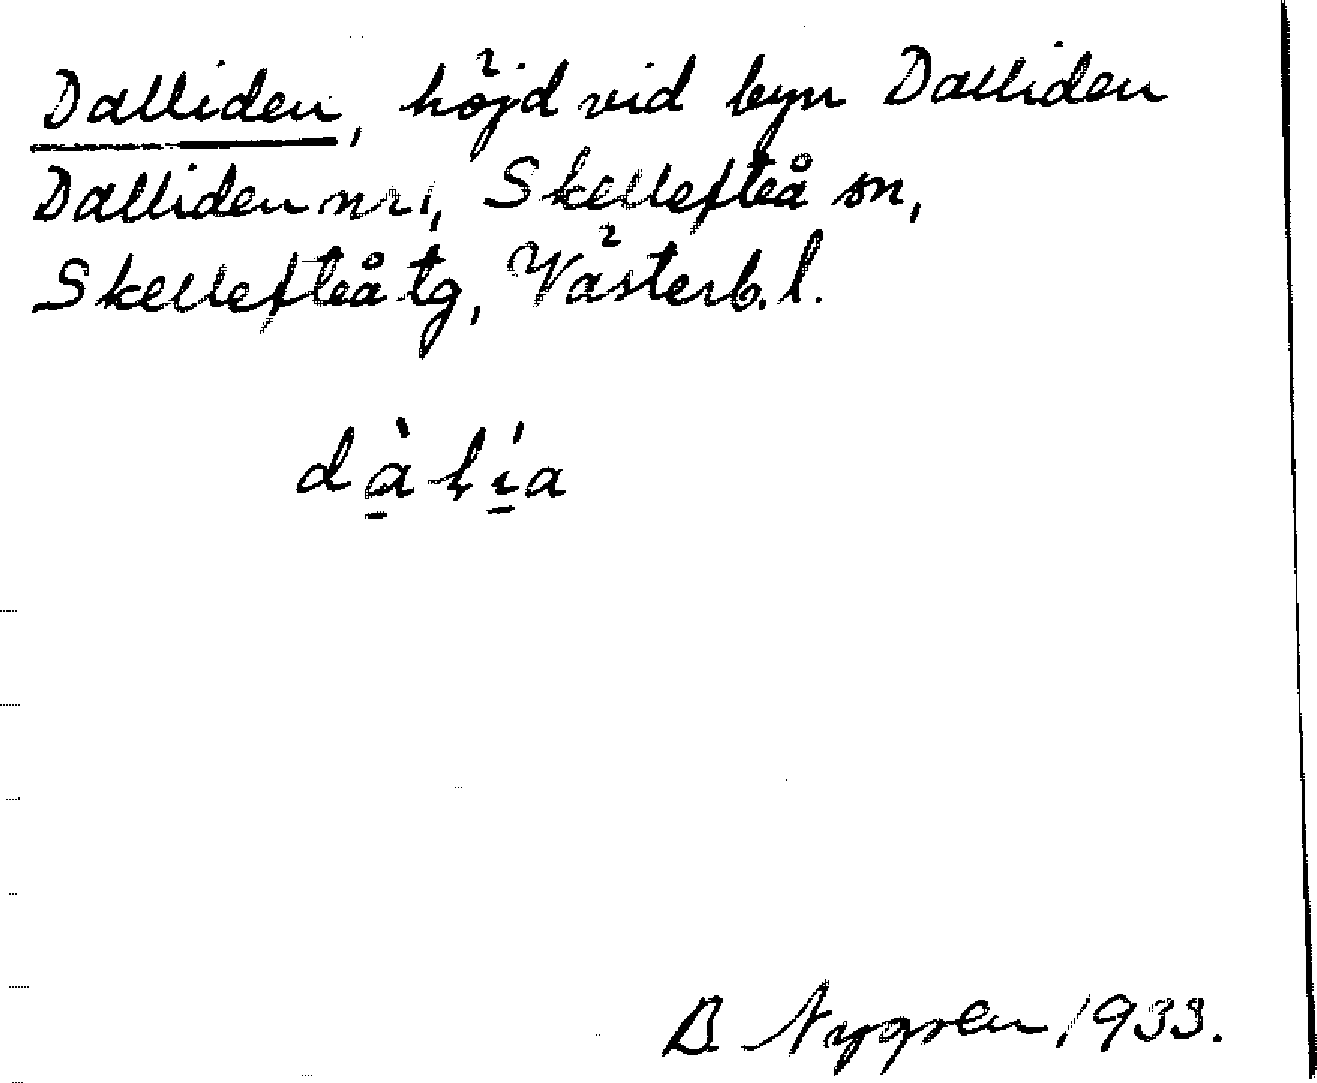 Dalliden, höjd vid byn Dalliden
Dalliden nr 1, Skellefteå sn,
Skellefteå tg, Västerb. l.
B Nygren 1933.